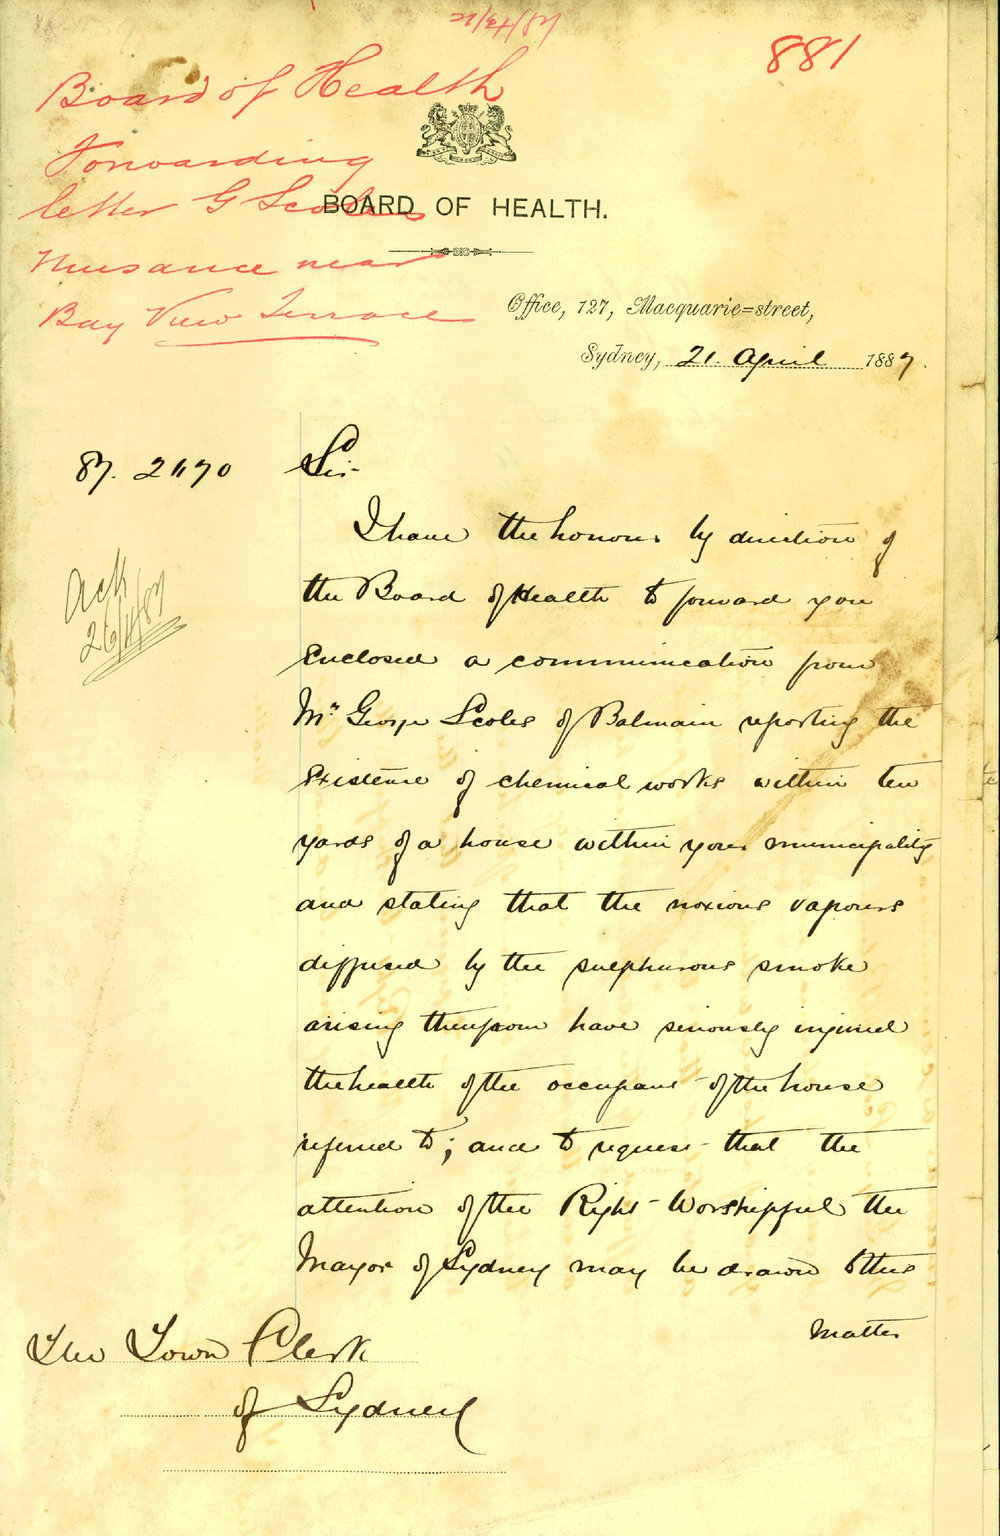 881
Board of Health
Forwarding
letter G Scoles
Nuisance near
Bay View Terrace
BOARD OF HEALTH.
Office, 127, Macquarie=street,
Sydney, 21. April 1887.
87. 2470
Ack
26/4/87
Sir
I have the honour by direction of
the Board of Health to forward you
enclosed a communication from
Mr George Scoles of Balmain reporting the
existence of chemical works within ten
yards of a house within your municipality
and stating that the noxious vapours
diffused by the sulphurous smoke
arising therefrom have seriously injured
the health of the occupant of the house
referred to; and to request that the
attention of the Right Worshipful the
Mayor of Sydney may be drawn to this
matter
The Town Clerk
of Sydney